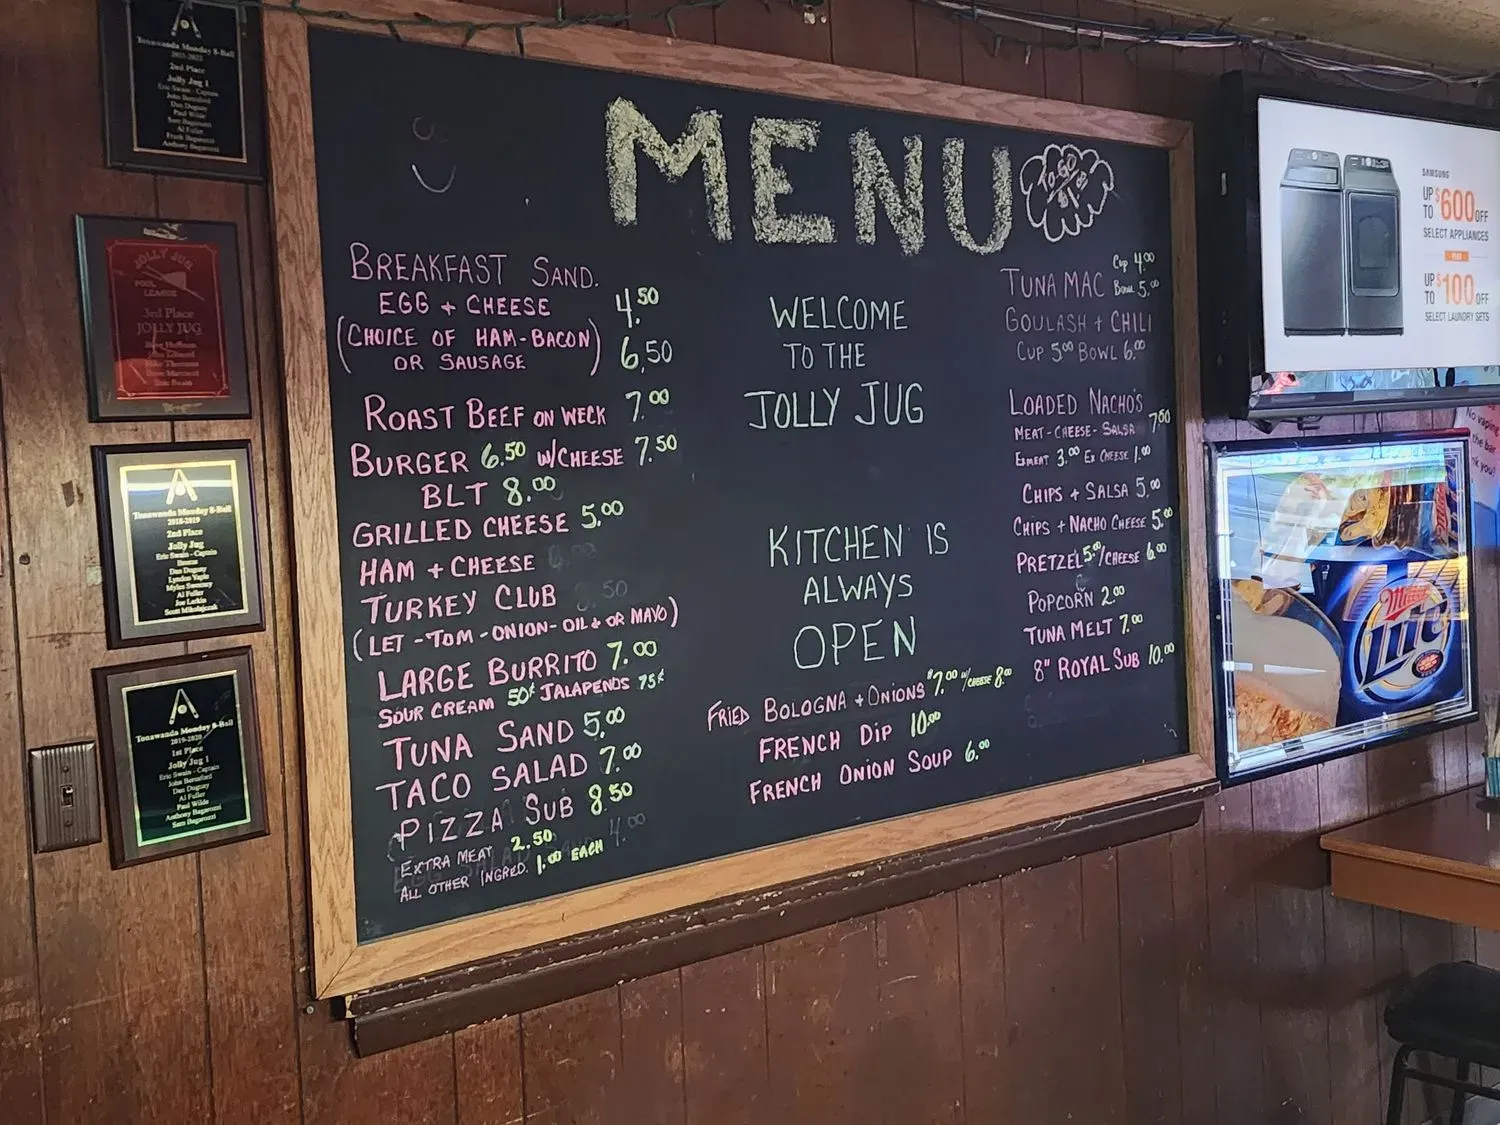 MENU
TO-GO
$1.00
BREAKFAST SAND.
EGG + CHEESE 4.50
(CHOICE OF HAM-BACON) 6.50
OR SAUSAGE
ROAST BEEF ON WECK 7.00
BURGER 6.50 W/CHEESE 7.50
BLT 8.00
GRILLED CHEESE 5.00
HAM + CHEESE
TURKEY CLUB
(LET-TOM-ONION-OIL + OR MAYO)
LARGE BURRITO 7.00
SOUR CREAM 50¢ JALAPENOS 75¢
TUNA SAND 5.00
TACO SALAD 7.00
PIZZA SUB 8.50
EXTRA MEAT 2.50
ALL OTHER INGRED. 1.00 EACH
WELCOME
TO THE
JOLLY JUG
KITCHEN IS
ALWAYS
OPEN
FRIED BOLOGNA + ONIONS $7.00 W/CHEESE 8.00
FRENCH DIP 10.00
FRENCH ONION SOUP 6.00
TUNA MAC Cup 4.00
Bowl 5.00
GOULASH + CHILI
CUP 5.00 BOWL 6.00
LOADED NACHO'S
MEAT-CHEESE-SALSA 7.00
EXMEAT 3.00 EX CHEESE 1.00
CHIPS + SALSA 5.00
CHIPS + NACHO CHEESE 5.00
PRETZEL 5.00/CHEESE 6.00
POPCORN 2.00
TUNA MELT 7.00
8" ROYAL SUB 10.00
Tonawanda Monday 8-Ball
2nd Place
Jolly Jug 1
Eric Swain - Captain
John Beresford
Dan Duguay
Paul Wilde
Sam Bagarozzi
Al Fuller
Frank Bagarozzi
Anthony Bagarozzi
JOLLY JUG
POOL
LEAGUE
3rd Place
JOLLY JUG
Eric Swain
Tonawanda Monday 8-Ball
2018-2019
2nd Place
Jolly Jug
Eric Swain - Captain
Dan Duguay
Al Fuller
Tonawanda Monday 8-Ball
2019-2020
1st Place
Jolly Jug 1
Eric Swain - Captain
John Beresford
Dan Duguay
Al Fuller
Paul Wilde
Anthony Bagarozzi
Sam Bagarozzi
SAMSUNG
UP TO $600 OFF
SELECT APPLIANCES
PLUS
UP TO $100 OFF
SELECT LAUNDRY SETS
No vaping
the bar
Miller
Lite